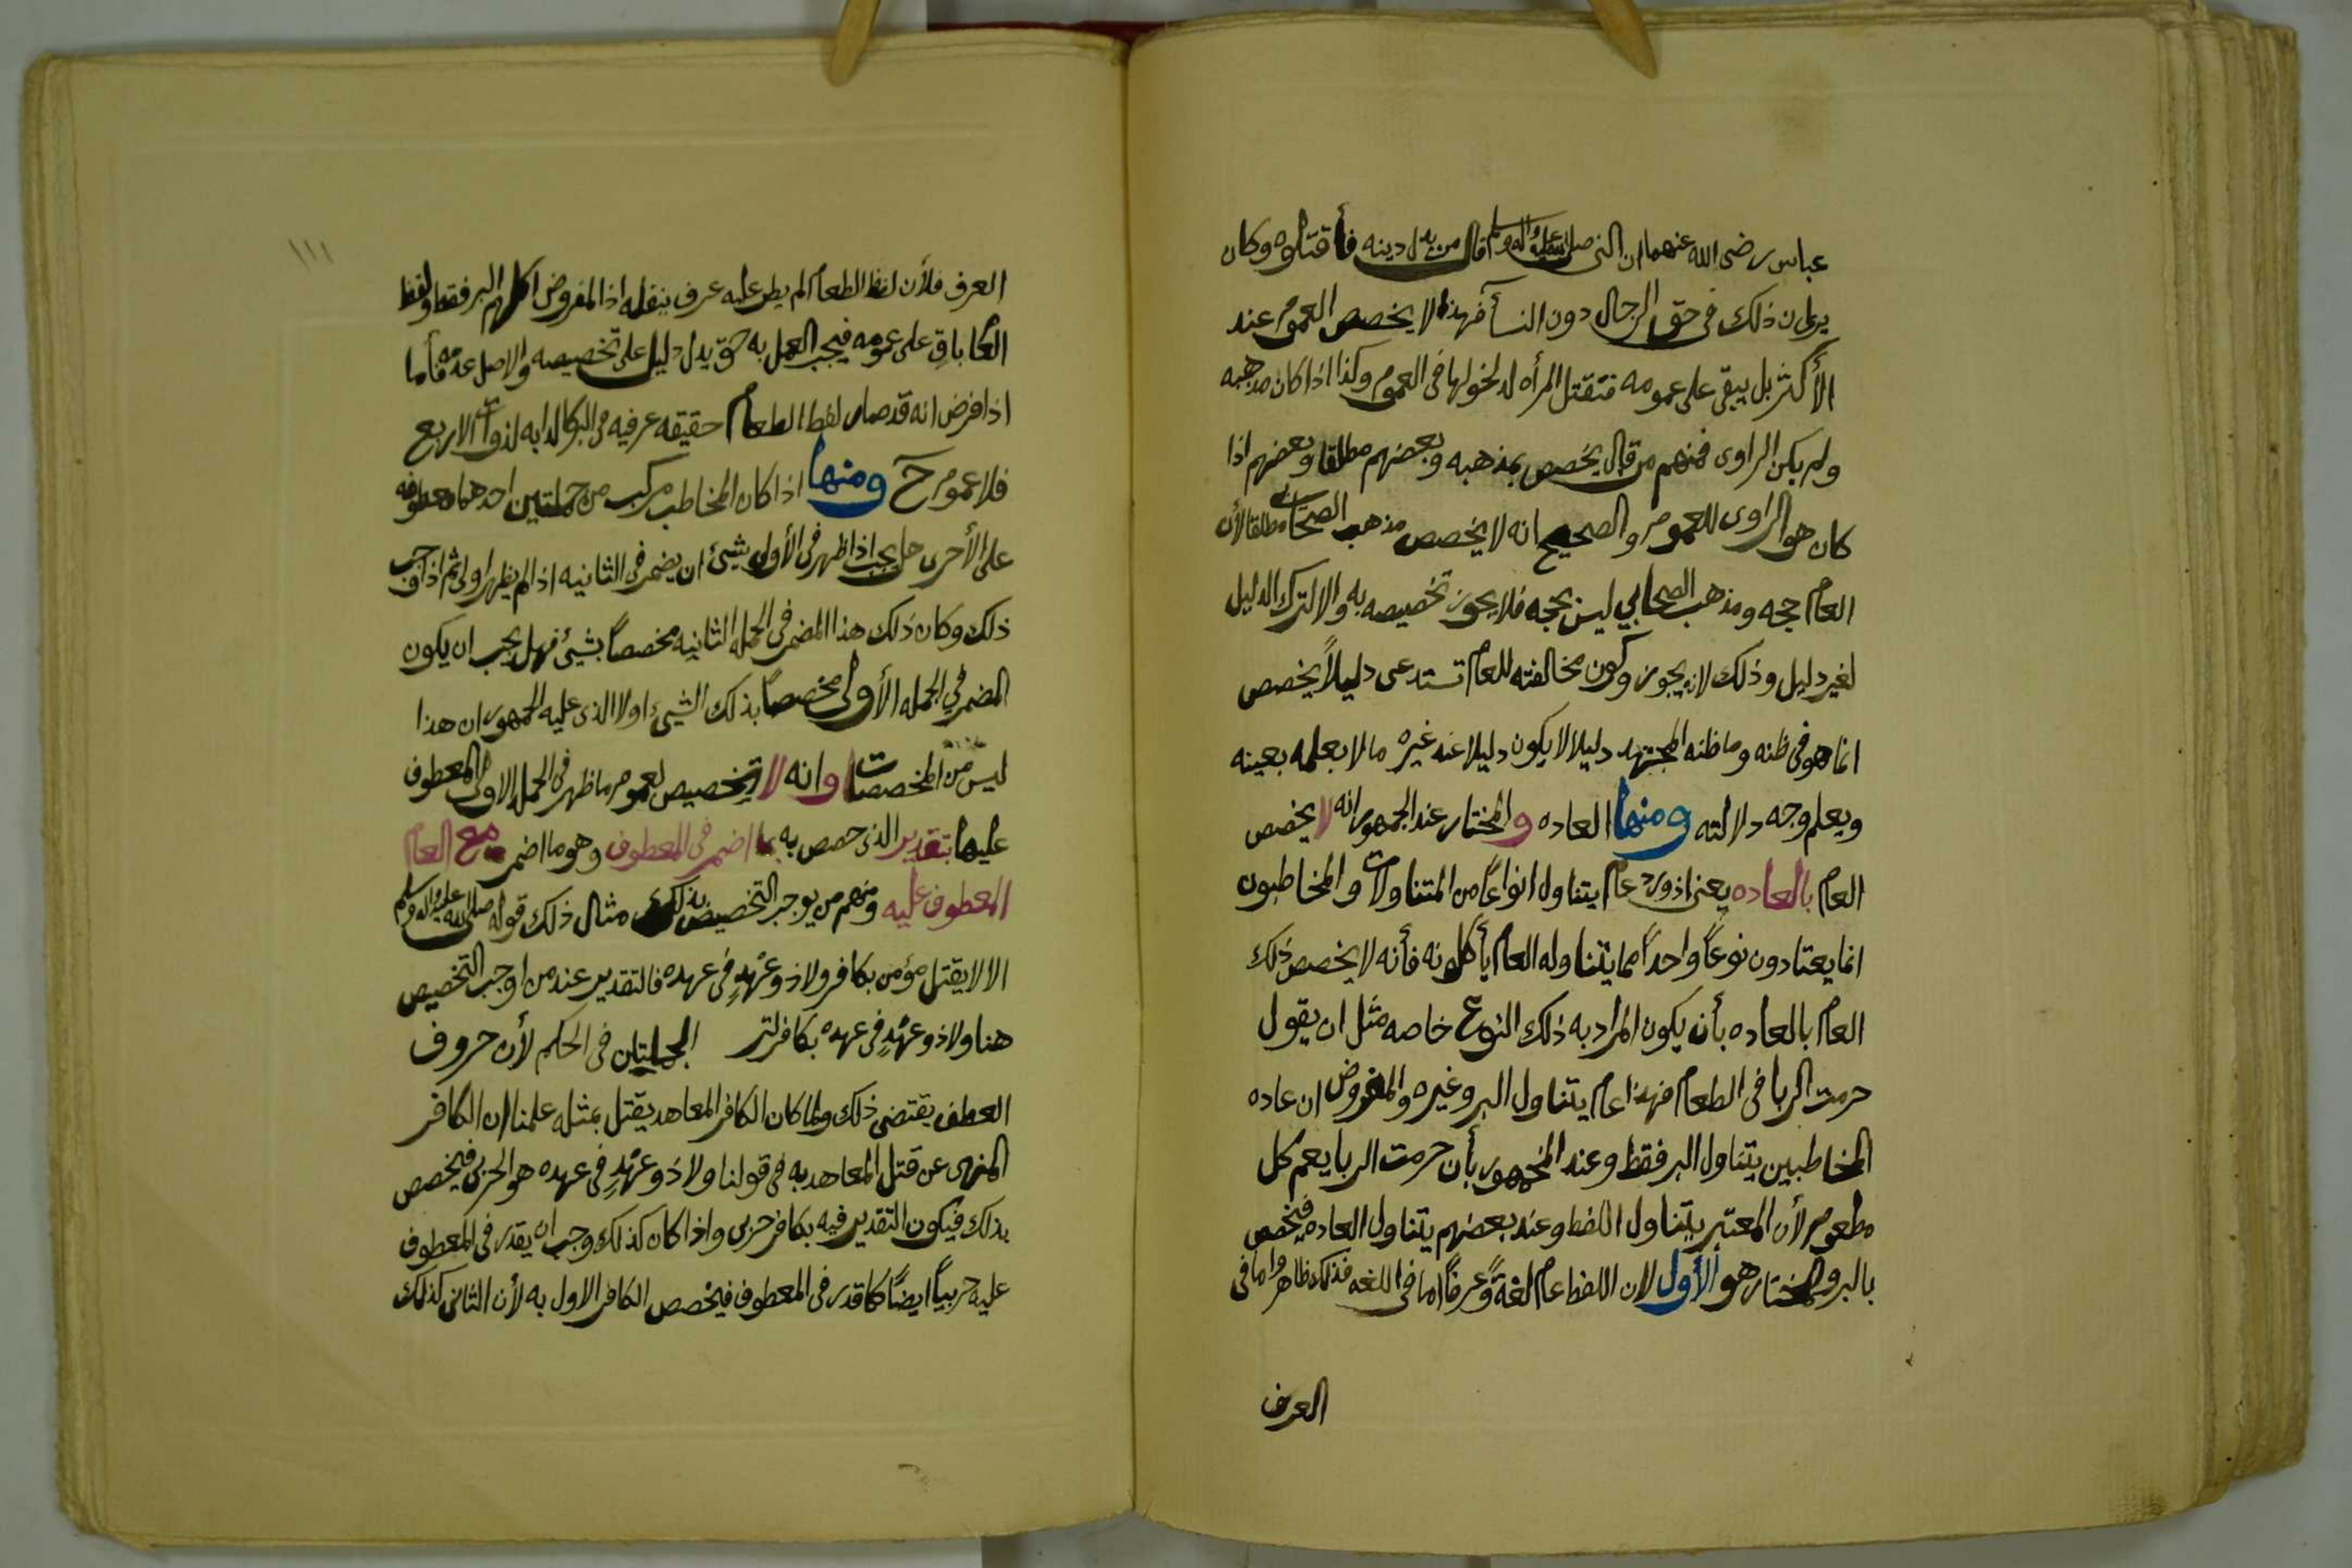 عباس رضى الله عنهما ان النبي صلى الله عليه واله وسلم قال من بدل دينه فأقتلوه وكان
يرى ان ذلك فى حق الرجال دون النسآ فهذا لا يخصص العموم عند
الأكثر بل يبقى على عمومه فتقتل المرأه لدخولها فى العموم وكذا اذا كان مذهبه
ولم يكن الراوى فمنهم من قال يخصص بمذهبه وبعضهم مطلقا وبعضهم اذا
كان هو الراوى للعموم والصحيح انه لا يخصص مذهب الصحابى مطلقا لأن
العام حجه ومذهب الصحابي ليس بحجه فلا يجوز تخصيصه به والا لترك الدليل
لغير دليل وذلك لا يجوز وكون مخالفته للعام تستدعى دليلاً يخصص
انما هو فى ظنه وما ظنه المجتهد دليلا لا يكون دليلا عند غيره مالا يعلمه بعينه
ويعلم وجه دلالته ومنها العاده والمختار عند الجمهور انه لا يخصص
العام بالعاده يعنى اذ ورد عام يتناول انواعاً من المتناولات والمخاطبون
انما يعتادون نوعاً واحداً مما يتناوله العام يأكلونه فأنه لا يخصص ذلك
العام بالعاده بأن يكون المراد به ذلك النوع خاصه مثل ان يقول
حرمت الربا فى الطعام فهذا عام يتناول البر وغيره والمفروض ان عاده
المخاطبين يتناول البر فقط وعند الجمهور بأن حرمت الربا يعم كل
مطعوم لأن المعتبر يتناول اللفظ وعند بعضهم يتناول العاده فيخصص
بالبر والمختار هو الأول لان اللفظ عام لغةً وعرفاً اما فى اللغه فذلك ظاهر واما فى
العرف
١١١
العرف فلأن لفظ الطعام لم يطر عليه عرف ينقله اذا المفروض اكلهم البر فقط ولفظ
العام باقٍ على عمومه فيجب العمل به حتى يدل دليل على تخصيصه والاصل عدمه فأما
اذا فرض انه قد صار لفظ الطعام حقيقه عرفيه فى البر كالدابه لذوات الاربع
فلا عموم حٓ ومنها اذا كان المخاطب مركب من جملتين احدهما معطوفه
على الأخرى هل يجب اذا ظهر فى الأولى شيئ ان يضمر فى الثانيه اذا لم يظهر اولى ثم اذا وجب
ذلك وكان ذلك هذا المضمر فى الجمله الثانيه مخصصاً بشيئ فهل يجب ان يكون
المضمر في الجمله الأولى مخصصاً بذلك الشيئ اولا الذى عليه الجمهور ان هذا
ليس من المخصصات وانه لا تخصيص لعموم ما ظهر فى الجمله الاولى المعطوف
عليها بتقدير الذى خصص به ما اضمر فى المعطوف وهو ما اضمر مع العام
المعطوف عليه ومنهم من يوجب التخصيص بذلك مثال ذلك قوله صلى الله عليه واله وسلم
الا لا يقتل مؤمن بكافر ولا ذو عهْدٍ فى عهده فالتقدير عند من اوجب التخصيص
هنا ولا ذو عهْدٍ فى عهده بكافر الجملتان فى الحكم لأن حروف
العطف يقتضى ذلك ولما كان الكافر المعاهد يقتل بمثله علمنا ان الكافر
المنهى عن قتل المعاهد به فى قولنا ولا ذو عهْدٍ فى عهده هو الحربى فيخصص
بذلك فيكون التقدير فيه بكافر حربى واذا كان كذلك وجب ان يقدر فى المعطوف
عليه حربياً ايضاً كما قدر فى المعطوف فيخصص الكافر الاول به لأن الثانى كذلك